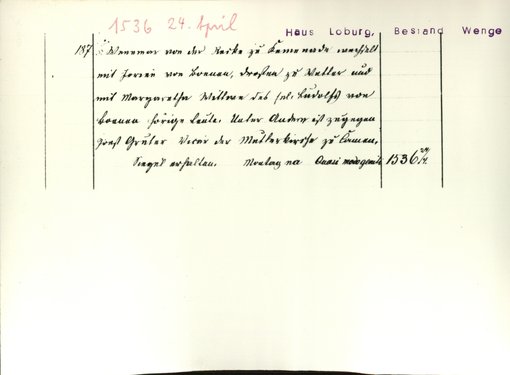 1536 24. April
Haus Loburg, Bestand Wenge
187 Wennemar von der Recke zu Kemenade wechselt
mit Jorien von Boenen, Drosten zu Wetter und
mit Margaretha Wittwe des sel. Ludolfs von
Boenen hörige Leute. Unter Andern ist zugegen
Joest Gruter Vicar der Mutterkirche zu Camen.
Siegel erhalten. Montag na Quasimodogeniti 1536 24/4.